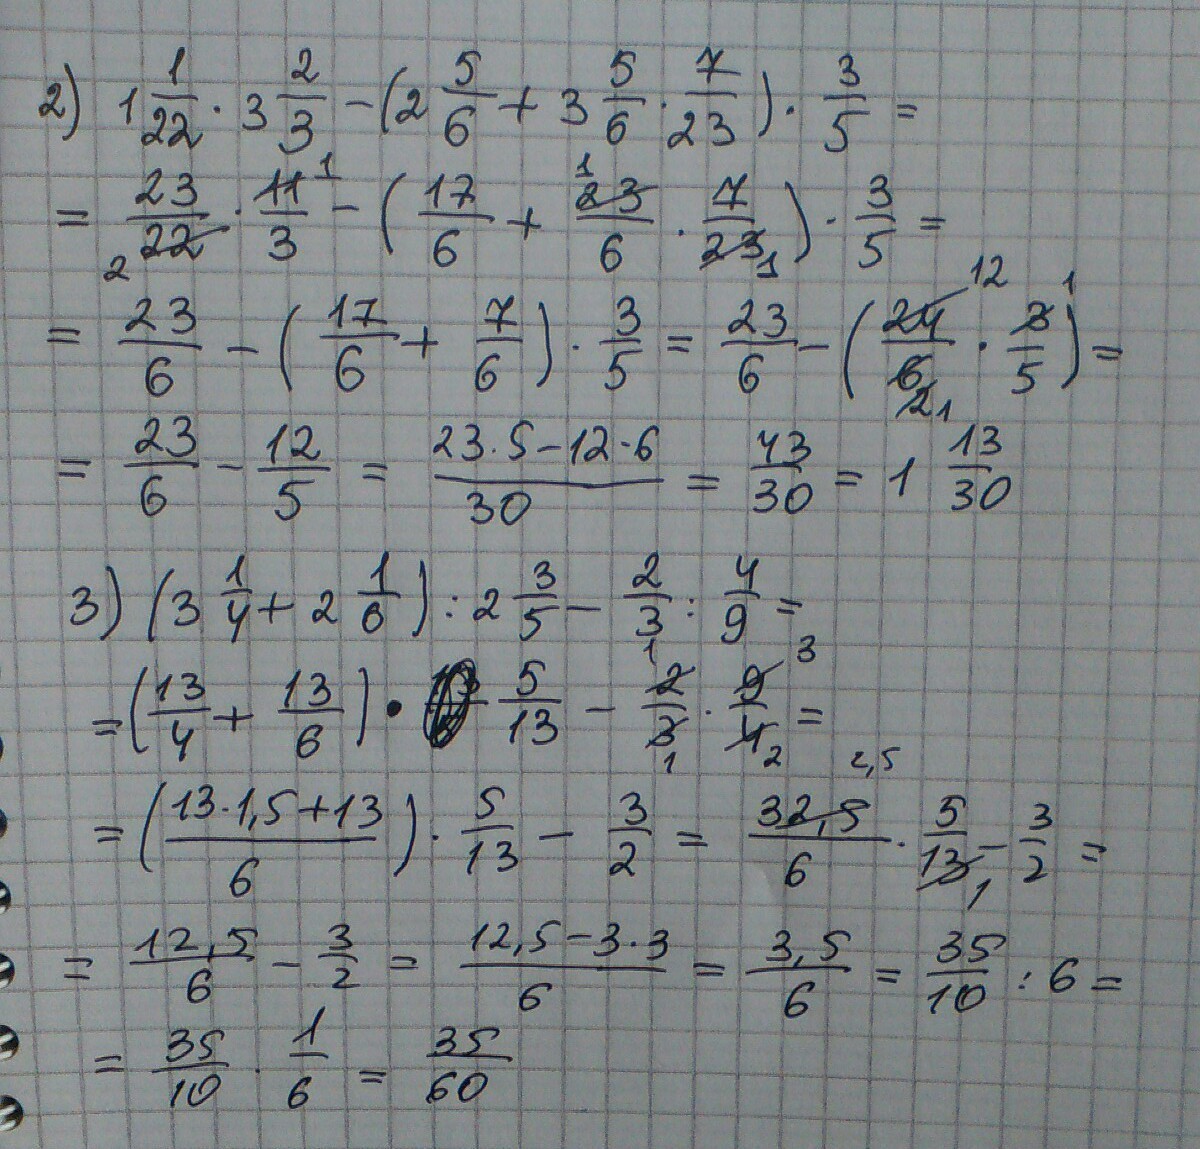 2) 1 1/22 · 3 2/3 − (2 5/6 + 3 5/6 · 7/23) · 3/5 =
= 23/22 2 · 11/3 1 − (17/6 + 23/6 1 · 7/23 1) · 3/5 =
= 23/6 − (17/6 + 7/6) · 3/5 = 23/6 − (24/6 12 2 1 · 3/5 1) =
= 23/6 − 12/5 = 23·5−12·6/30 = 43/30 = 1 13/30
3) (3 1/4 + 2 1/6) : 2 3/5 − 2/3 : 4/9 =
= (13/4 + 13/6) · 5/13 − 2/3 1 1 · 9/4 3 2 =
= (13·1,5+13/6) · 5/13 − 3/2 = 32,5/6 2,5 · 5/13 1 − 3/2 =
= 12,5/6 − 3/2 = 12,5−3·3/6 = 3,5/6 = 35/10 : 6 =
= 35/10 · 1/6 = 35/60